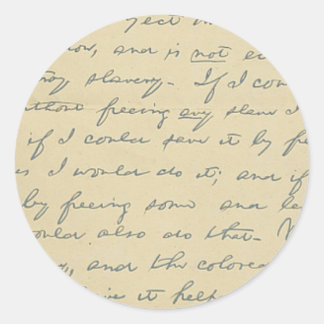 ject in
ow, and is not e
roy slavery. If I cou
ithout freeing any slave I
if I could save it by fre
es I would do it; and if
by freeing some and le
ould also do that.
and the colored
it help